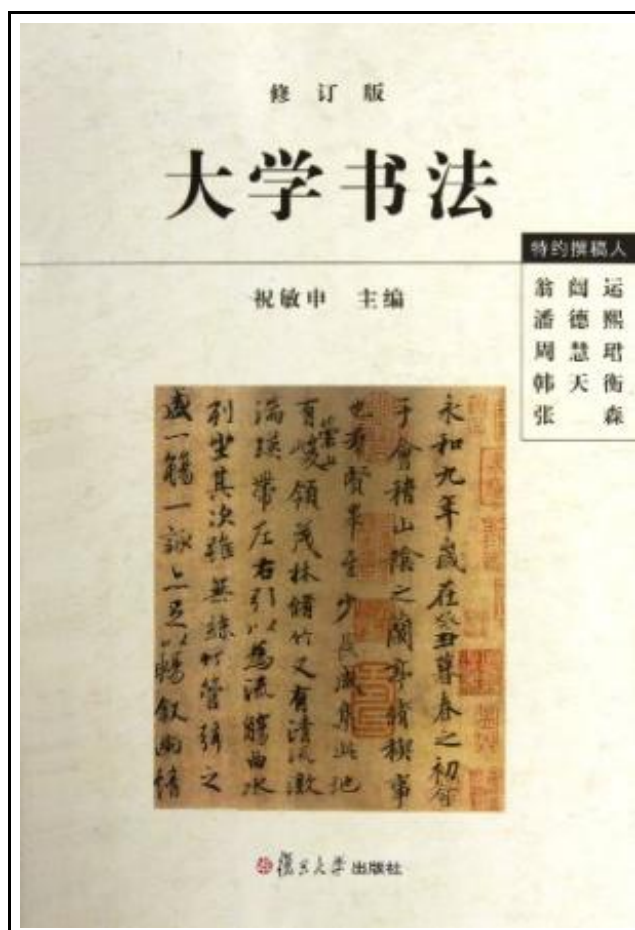 修订版
大学书法
祝敏申 主编
特约撰稿人
翁闿运
潘德熙
周慧珺
韩天衡
张森
永和九年歲在癸丑暮春之初會
于會稽山陰之蘭亭脩稧事
也羣賢畢至少長咸集此地
有崇山峻領茂林脩竹又有清流激
湍暎帶左右引以為流觴曲水
列坐其次雖無絲竹管弦之
盛一觴一詠亦足以暢敘幽情
復旦大学出版社